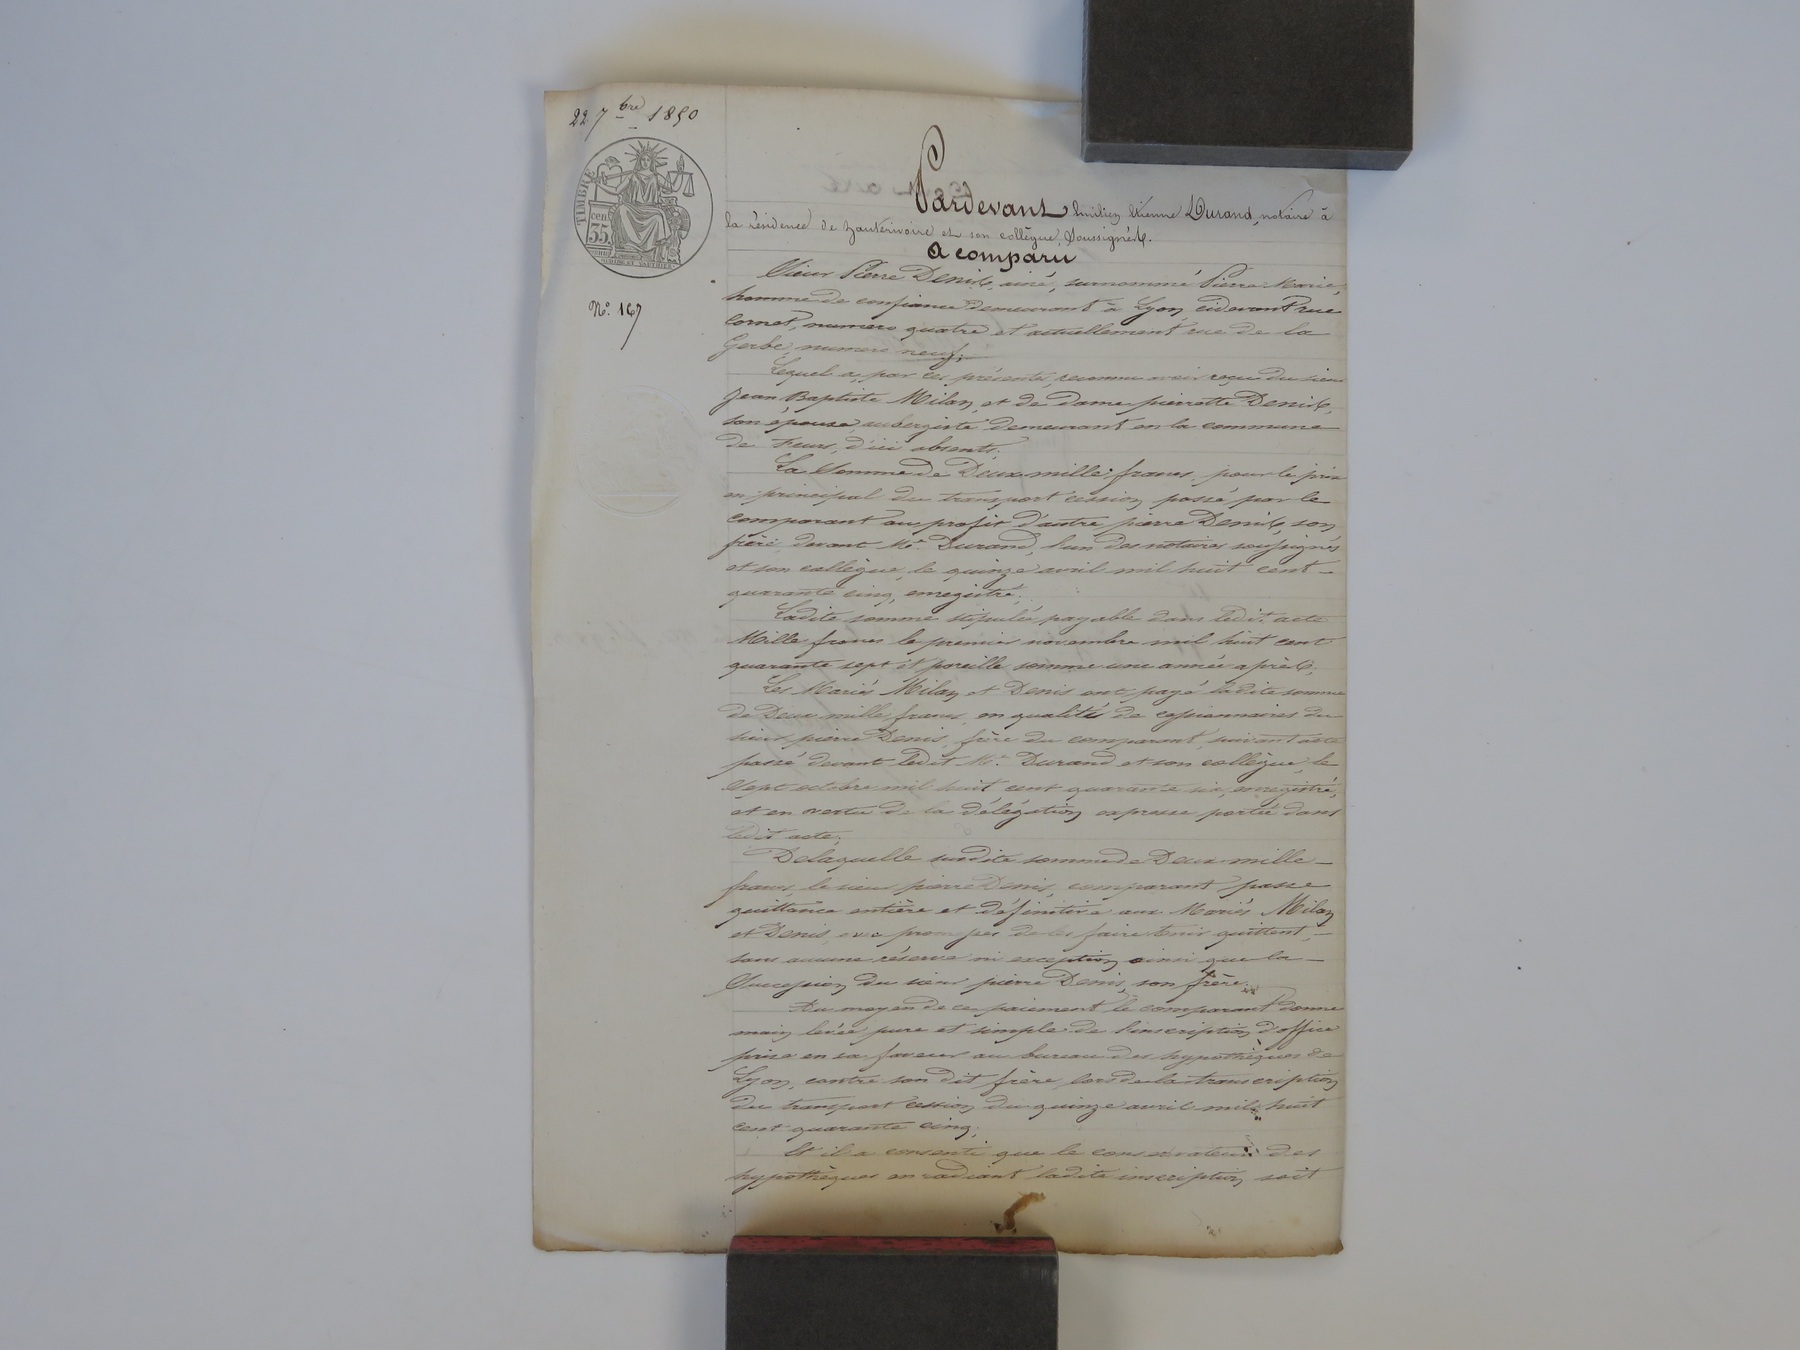 22 7bre 1850
TIMBRE
cen
35.
No. 167
Pardevant Emilien Etienne Durand, notaire à
la résidence de hauterivoire et son collègue, soussignés.
A comparu
Sieur Pierre Denis, ainé, surnommé Pierre-Marie,
homme de confiance demeurant à Lyon, cidevant rue
Cornet, numero quatre et actuellement rue de la
Gerbe, numero neuf;
Lequel a, par ces présentes, reconnu avoir reçu du sieur
Jean Baptiste Milan, et de dame pierrette Denis,
son épouse, aubergiste demeurant en la commune
de Feurs, d'ici absents;
La somme de Deux mille francs, pour le prix
en principal du transport cession passé par le
comparant au profit d'autre pierre Denis, son
frère, devant Me. Durand, l'un des notaires soussignés
et son collègue, le quinze avril mil huit cent-
quarante cinq, enregistré;
Ladite somme stipulée payable dans ledit acte
Mille francs le premier novembre mil huit cent
quarante sept et pareille somme une année après;
Les Mariés Milan et Denis ont payé ladite somme
de Deux mille francs, en qualités de cessionnaires du
sieur pierre Denis, frère du comparant, suivant acte
passé devant ledit Me. Durand et son collègue, le
Sept octobre mil huit cent quarante six, enregistré,
et en vertu de la délégation expresse portée dans
ledit acte;
Delaquelle susdite somme de Deux mille-
francs, le sieur pierre Denis, comparant passe
quittance entière et définitive aux Mariés Milan
et Denis, avec promesses de les faire tenir quittent,-
sans aucune réserve ni exception ainsi que la-
Succession du sieur pierre Denis, son frère.
Au moyen de ce paiement le comparant donne
main levée pure et simple de l'inscription d'office
prise en sa faveur au bureau des hypothèques de
Lyon, contre son dit frère lors de la transcription
du transport cession du quinze avril mil huit
cent quarante cinq;
Et il a consenti que le conservateur des
hypothèques en radiant ladite inscription soit